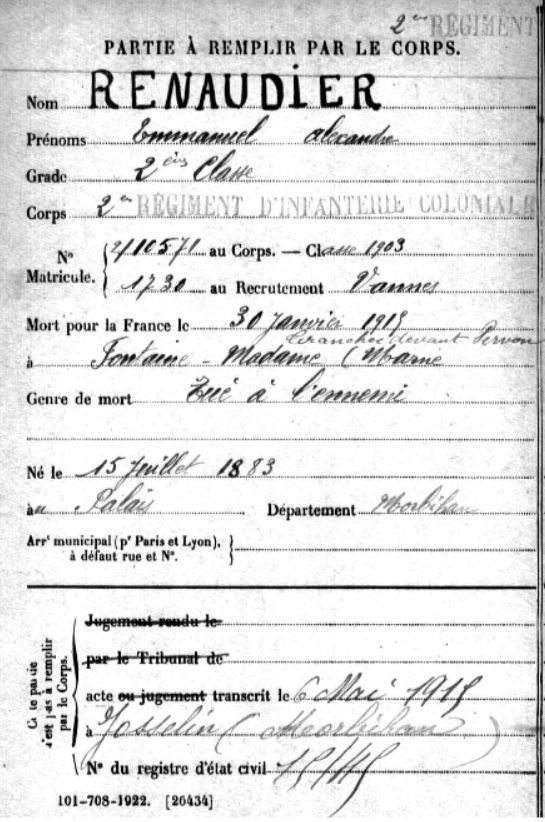 2e REGIMENT
PARTIE À REMPLIR PAR LE CORPS.
Nom RENAUDIER
Prénoms Emmanuel Alexandre
Grade 2e Classe
Corps 2e RÉGIMENT D'INFANTERIE COLONIALE
No Matricule. { 2/10571 au Corps. — Classe 1903
1730 au Recrutement Vannes
Mort pour la France le 30 Janvier 1915
tranchée devant
à Fontaine - Madame (Marne
Genre de mort Tué à l'ennemi
Né le 15 Juillet 1883
au Palais Département Morbihan
Arrt municipal (pr Paris et Lyon),
à défaut rue et No. }
Jugement rendu le
par le Tribunal de
acte ou jugement transcrit le 6 Mai 1915
à Josselin (Morbihan)
No du registre d'état civil
Cette partie
n'est pas à remplir
par le Corps.
101-708-1922. [26434]